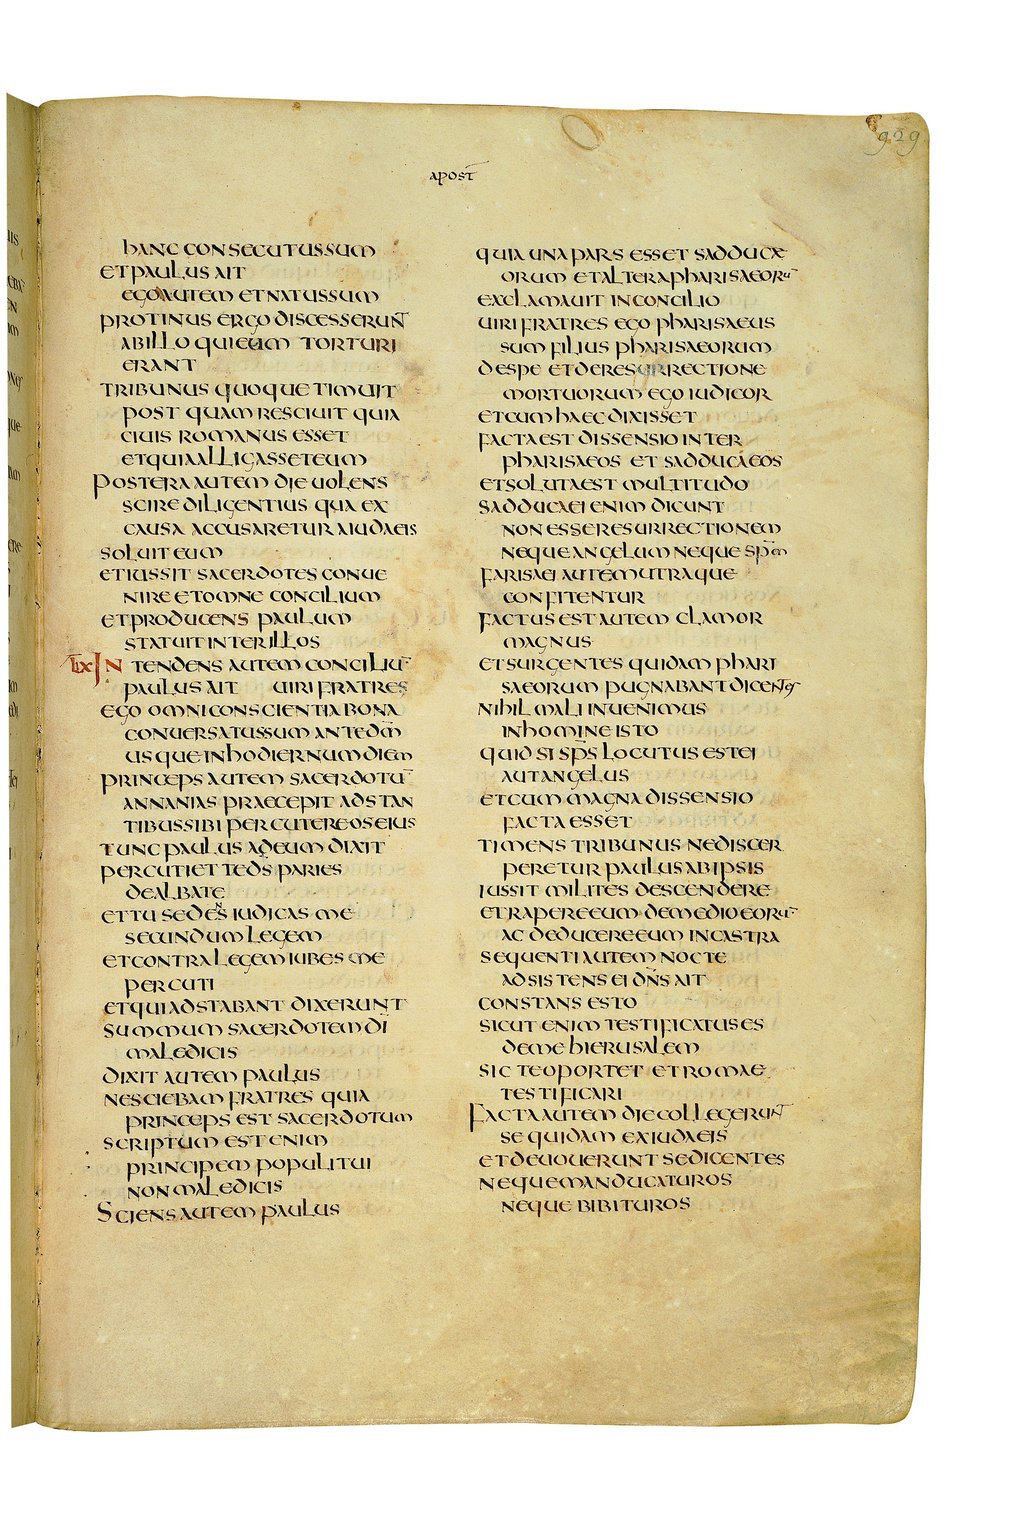 929
APOST̄
HANC CONSECUTUS SUM
ET PAULUS AIT
EGO AUTEM ET NATUS SUM
PROTINUS ERGO DISCESSERUNT̄
AB ILLO QUI EUM TORTURI
ERANT
TRIBUNUS QUOQUE TIMUIT
POST QUAM RESCIUIT QUIA
CIUIS ROMANUS ESSET
ET QUIA ALLIGASSET EUM
POSTERA AUTEM DIE UOLENS
SCIRE DILIGENTIUS QUA EX
CAUSA ACCUSARETUR A IUDAEIS
SOLUIT EUM
ET IUSSIT SACERDOTES CONUE
NIRE ET OMNE CONCILIUM
ET PRODUCENS PAULUM
STATUIT INTER ILLOS
LIX IN TENDENS AUTEM CONCILIŪ
PAULUS AIT UIRI FRATRES
EGO OMNI CONSCIENTIA BONA
CONUERSATUS SUM ANTE DM̄
USQUE IN HODIERNUM DIEM
PRINCEPS AUTEM SACERDOTŪ
ANNANIAS PRAECEPIT ADSTAN
TIBUS SIBI PERCUTERE OS EIUS
TUNC PAULUS AD EUM DIXIT
PERCUTIET TE DS̄ PARIES
DEALBATE
ET TU SEDENS IUDICAS ME
SECUNDUM LEGEM
ET CONTRA LEGEM IUBES ME
PERCUTI
ET QUI ADSTABANT DIXERUNT
SUMMUM SACERDOTEM DĪ
MALEDICIS
DIXIT AUTEM PAULUS
NESCIEBAM FRATRES QUIA
PRINCEPS EST SACERDOTUM
SCRIPTUM EST ENIM
PRINCIPEM POPULI TUI
NON MALEDICIS
SCIENS AUTEM PAULUS
QUIA UNA PARS ESSET SADDUCAE
ORUM ET ALTERA PHARISAEORŪ
EXCLAMAUIT IN CONCILIO
UIRI FRATRES EGO PHARISAEUS
SUM FILIUS PHARISAEORUM
DE SPE ET DE RESURRECTIONE
MORTUORUM EGO IUDICOR
ET CUM HAEC DIXISSET
FACTA EST DISSENSIO INTER
PHARISAEOS ET SADDUCAEOS
ET SOLUTA EST MULTITUDO
SADDUCAEI ENIM DICUNT
NON ESSE RESURRECTIONEM
NEQUE ANGELUM NEQUE SPM̄
FARISAEI AUTEM UTRAQUE
CONFITENTUR
FACTUS EST AUTEM CLAMOR
MAGNUS
ET SURGENTES QUIDAM PHARI
SAEORUM PUGNABANT DICENTES
NIHIL MALI INUENIMUS
IN HOMINE ISTO
QUID SI SPS̄ LOCUTUS EST EI
AUT ANGELUS
ET CUM MAGNA DISSENSIO
FACTA ESSET
TIMENS TRIBUNUS NE DISCER
PERETUR PAULUS AB IPSIS
IUSSIT MILITES DESCENDERE
ET RAPERE EUM DE MEDIO EORŪ
AC DEDUCERE EUM IN CASTRA
SEQUENTI AUTEM NOCTE
ADSISTENS EI DN̄S AIT
CONSTANS ESTO
SICUT ENIM TESTIFICATUS ES
DE ME HIERUSALEM
SIC TE OPORTET ET ROMAE
TESTIFICARI
FACTA AUTEM DIE COLLEGERUNT̄
SE QUIDAM EX IUDAEIS
ET DEUOUERUNT SE DICENTES
NEQUE MANDUCATUROS
NEQUE BIBITUROS